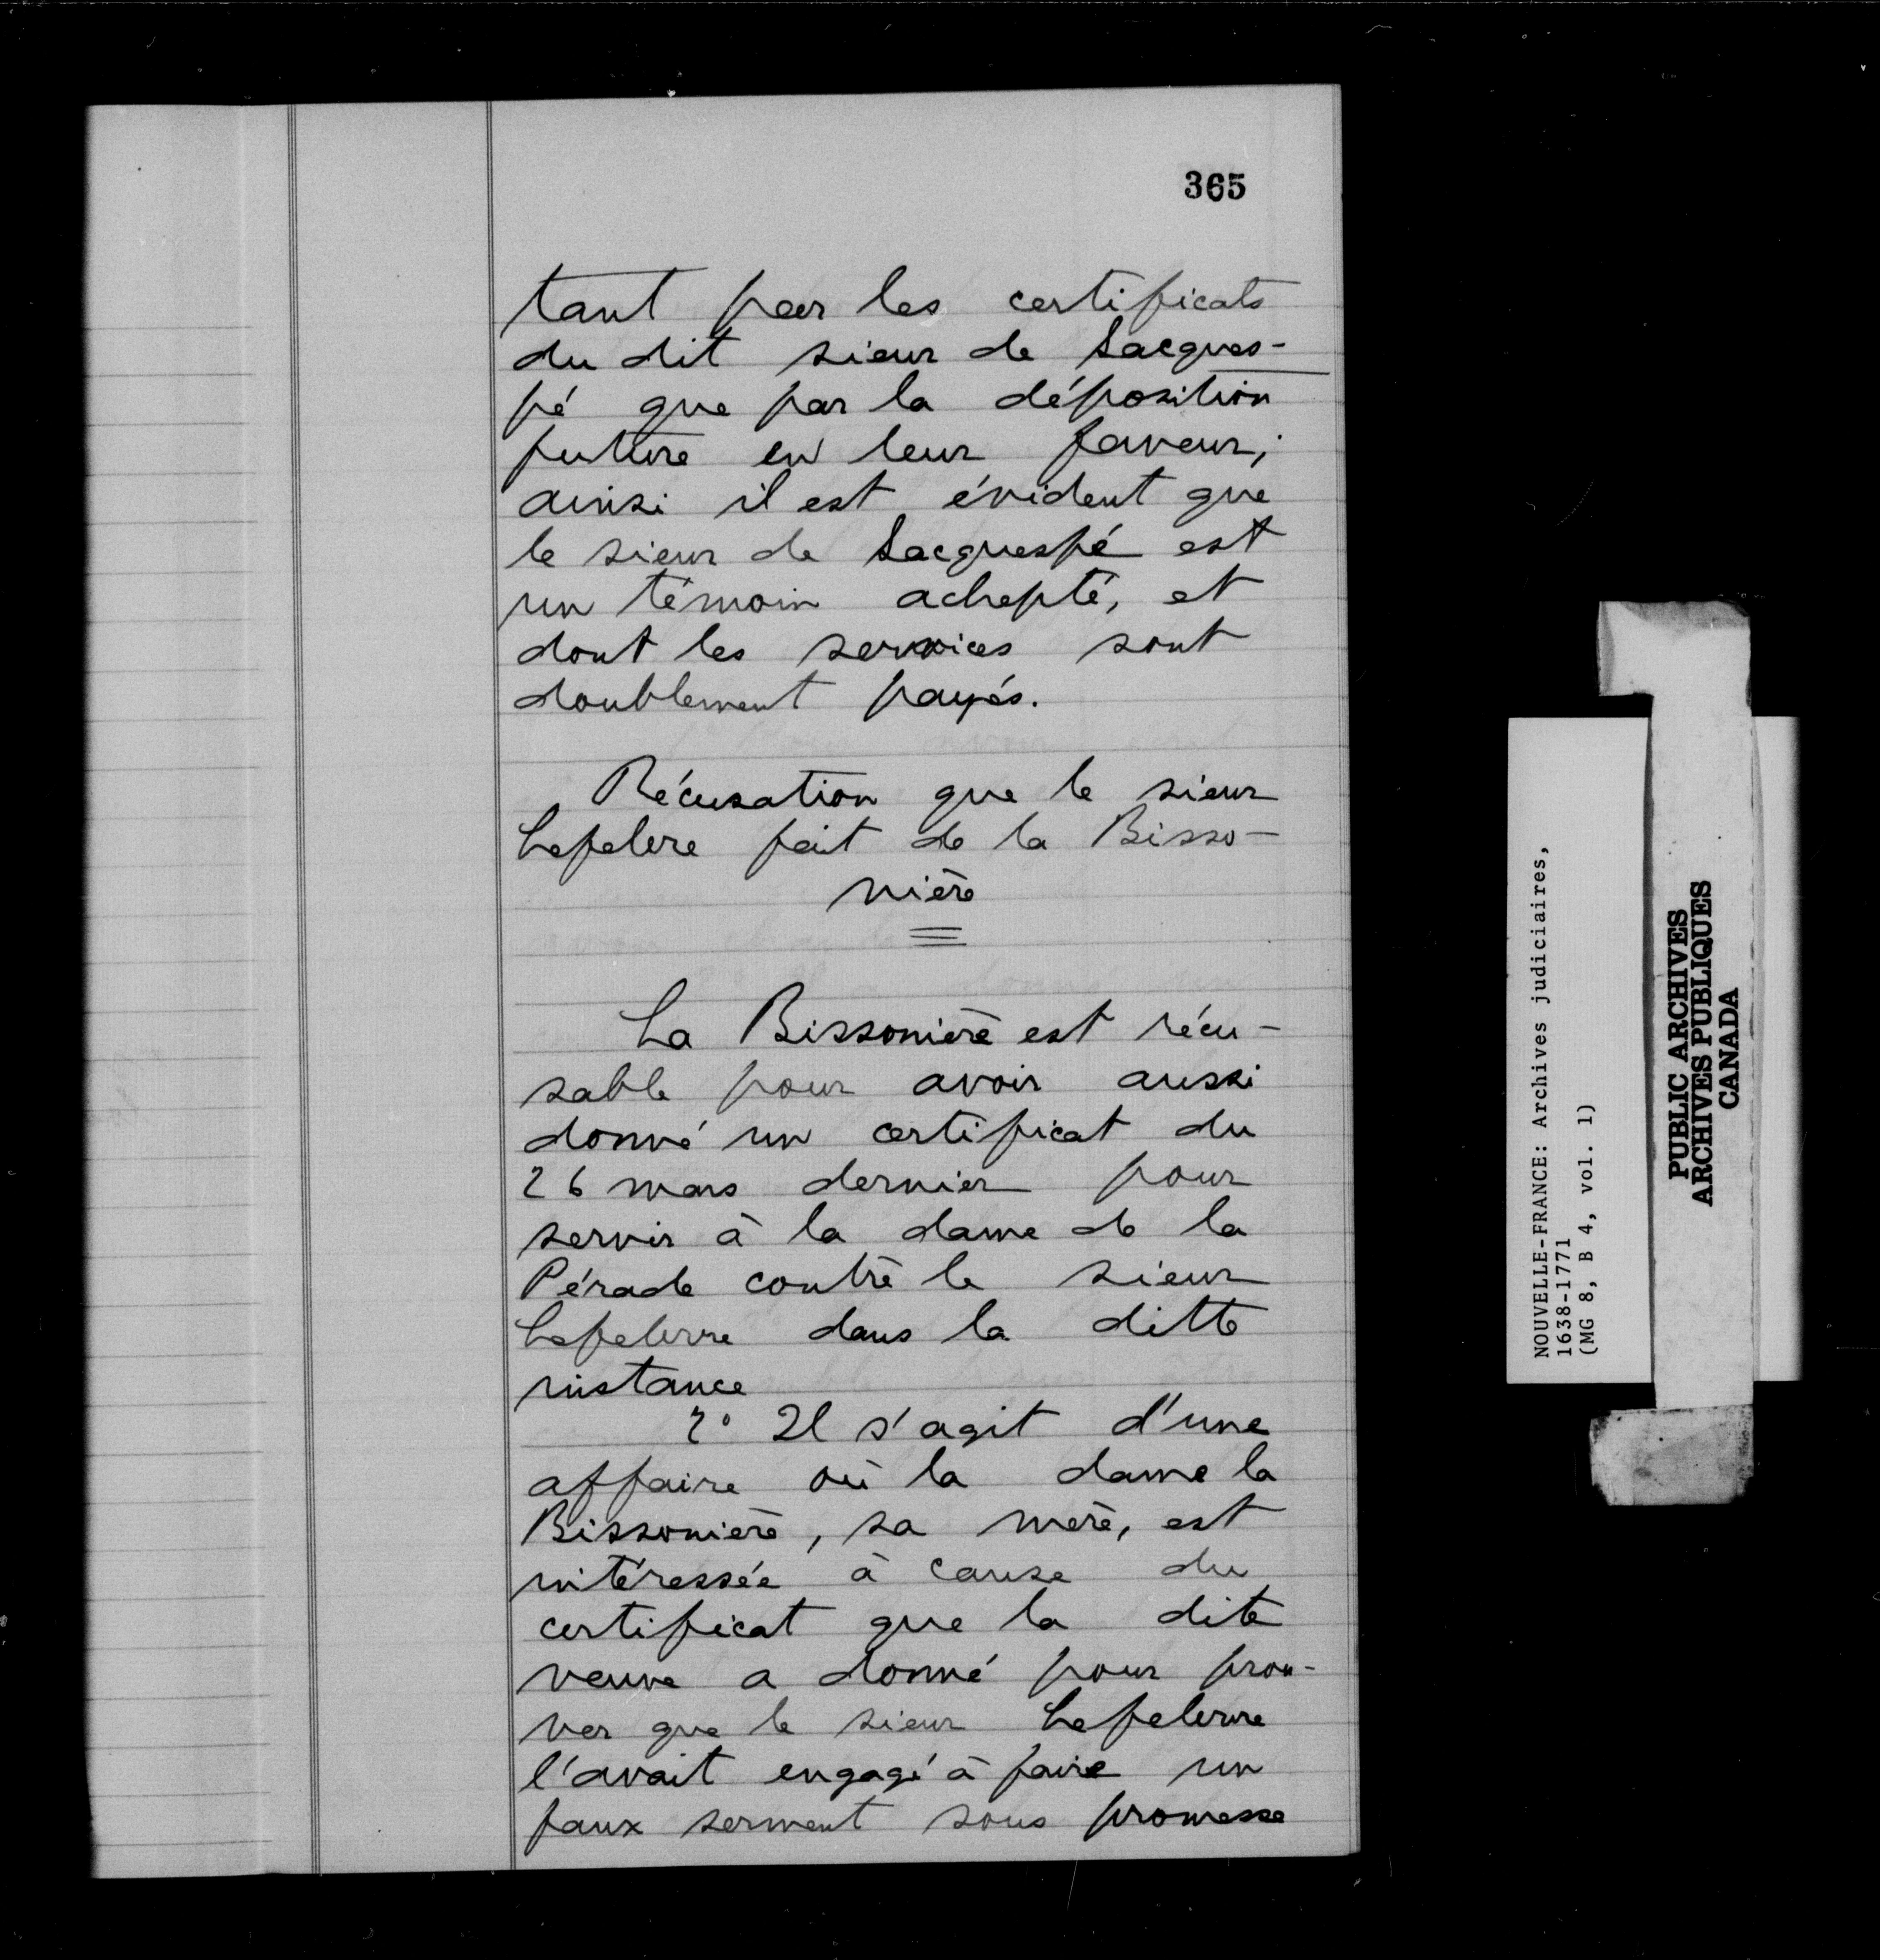 365
tant par les certificats
du dit sieur de Lacques-
pé que par la déposition
future en leur faveur;
ainsi il est évident que
le sieur de Lacquespé est
un témoin achepté, et
dont les services sont
doublement payés.
Récusation que le sieur
Lefebvre fait de la Bisso-
nière
La Bissonière est récu-
sable pour avoir aussi
donné un certificat du
26 mars dernier pour
servir à la dame de la
Pérade contre le sieur
Lefebvre dans la ditte
instance
2° Il s'agit d'une
affaire où la dame la
Bissonière, sa mère, est
intéressée à cause du
certificat que la dite
veuve a donné pour prou-
ver que le sieur Lefebvre
l'avait engagé à faire un
faux serment sous promesse
NOUVELLE-FRANCE: Archives judiciaires,
1638-1771
(MG 8, B 4, vol. 1)
PUBLIC ARCHIVES
ARCHIVES PUBLIQUES
CANADA